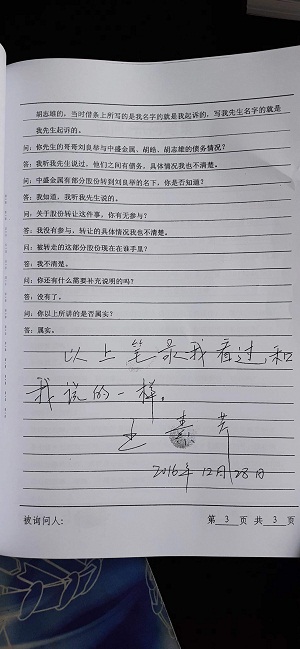 胡志雄的，当时借条上所写的是我名字的就是我起诉的，写我先生名字的就是
我先生起诉的。
问：你先生的哥哥刘良举与中盛金属、胡皓、胡志雄的债务情况？
答：我听我先生说过，他们之间有债务，具体情况我也不清楚。
问：中盛金属有部分股份转到刘良举的名下，你是否知道？
答：我知道，我听我先生说的。
问：关于股份转让这件事，你有无参与？
答：我没有参与，转让的具体情况我也不清楚。
问：被转走的这部分股份现在在谁手里？
答：我不清楚。
问：你还有什么需要补充说明的吗？
答：没有了。
问：你以上所讲的是否属实？
答：属实。
以上笔录我看过，和
我说的一样。
2016年12月28日
被询问人：
第 3 页 共 3 页